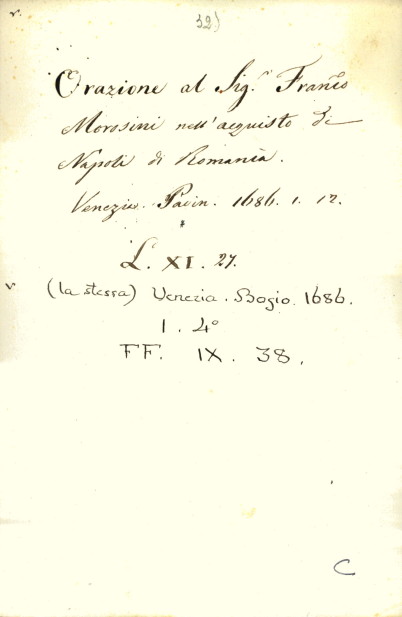 v.
32)
Orazione al Sig.r Fran.co
Morosini nell'acquisto di
Napoli di Romania.
Venezia. Pavin. 1686. 1. 12.
L. XI. 27.
v (la stessa) Venezia. Bogio. 1686.
1. 4°
FF. IX. 38.
C